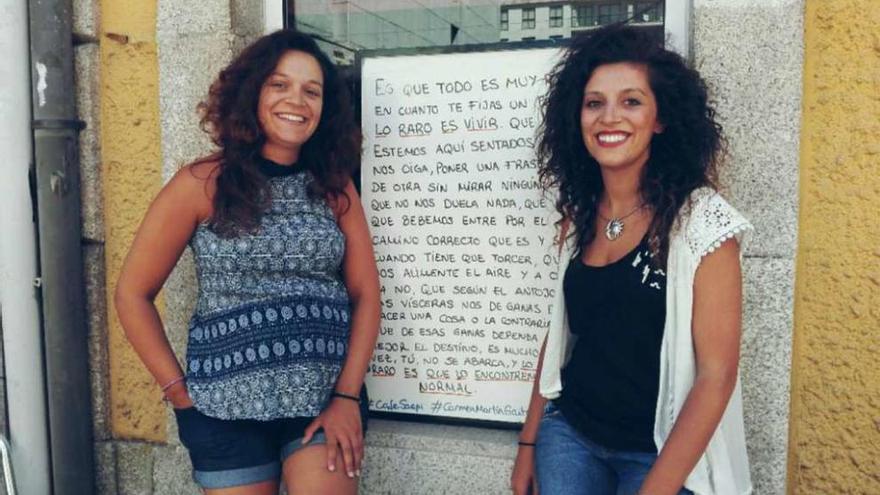 ES QUE TODO ES MUY
EN CUANTO TE FIJAS UN
LO RARO ES VIVIR. QUE
ESTEMOS AQUÍ SENTADOS
NOS OIGA, PONER UNA FRAS
DE OTRA SIN MIRAR NINGÚN
QUE NO NOS DUELA NADA, QUE
QUE BEBEMOS ENTRE POR EL
CAMINO CORRECTO QUE ES Y
CUANDO TIENE QUE TORCER, QU
NOS ALIMENTE EL AIRE Y A
YA NO, QUE SEGÚN EL ANTOJO
LAS VÍSCERAS NOS DE GANAS D
HACER UNA COSA O LA CONTRARIA
QUE DE ESAS GANAS DEPENDA
MEJOR EL DESTINO, ES MUCHO
VEZ, TÚ, NO SE ABARCA, Y LO
RARO ES QUE LO ENCONTREM
NORMAL
#CafeSaepi #CarmenMartínGait